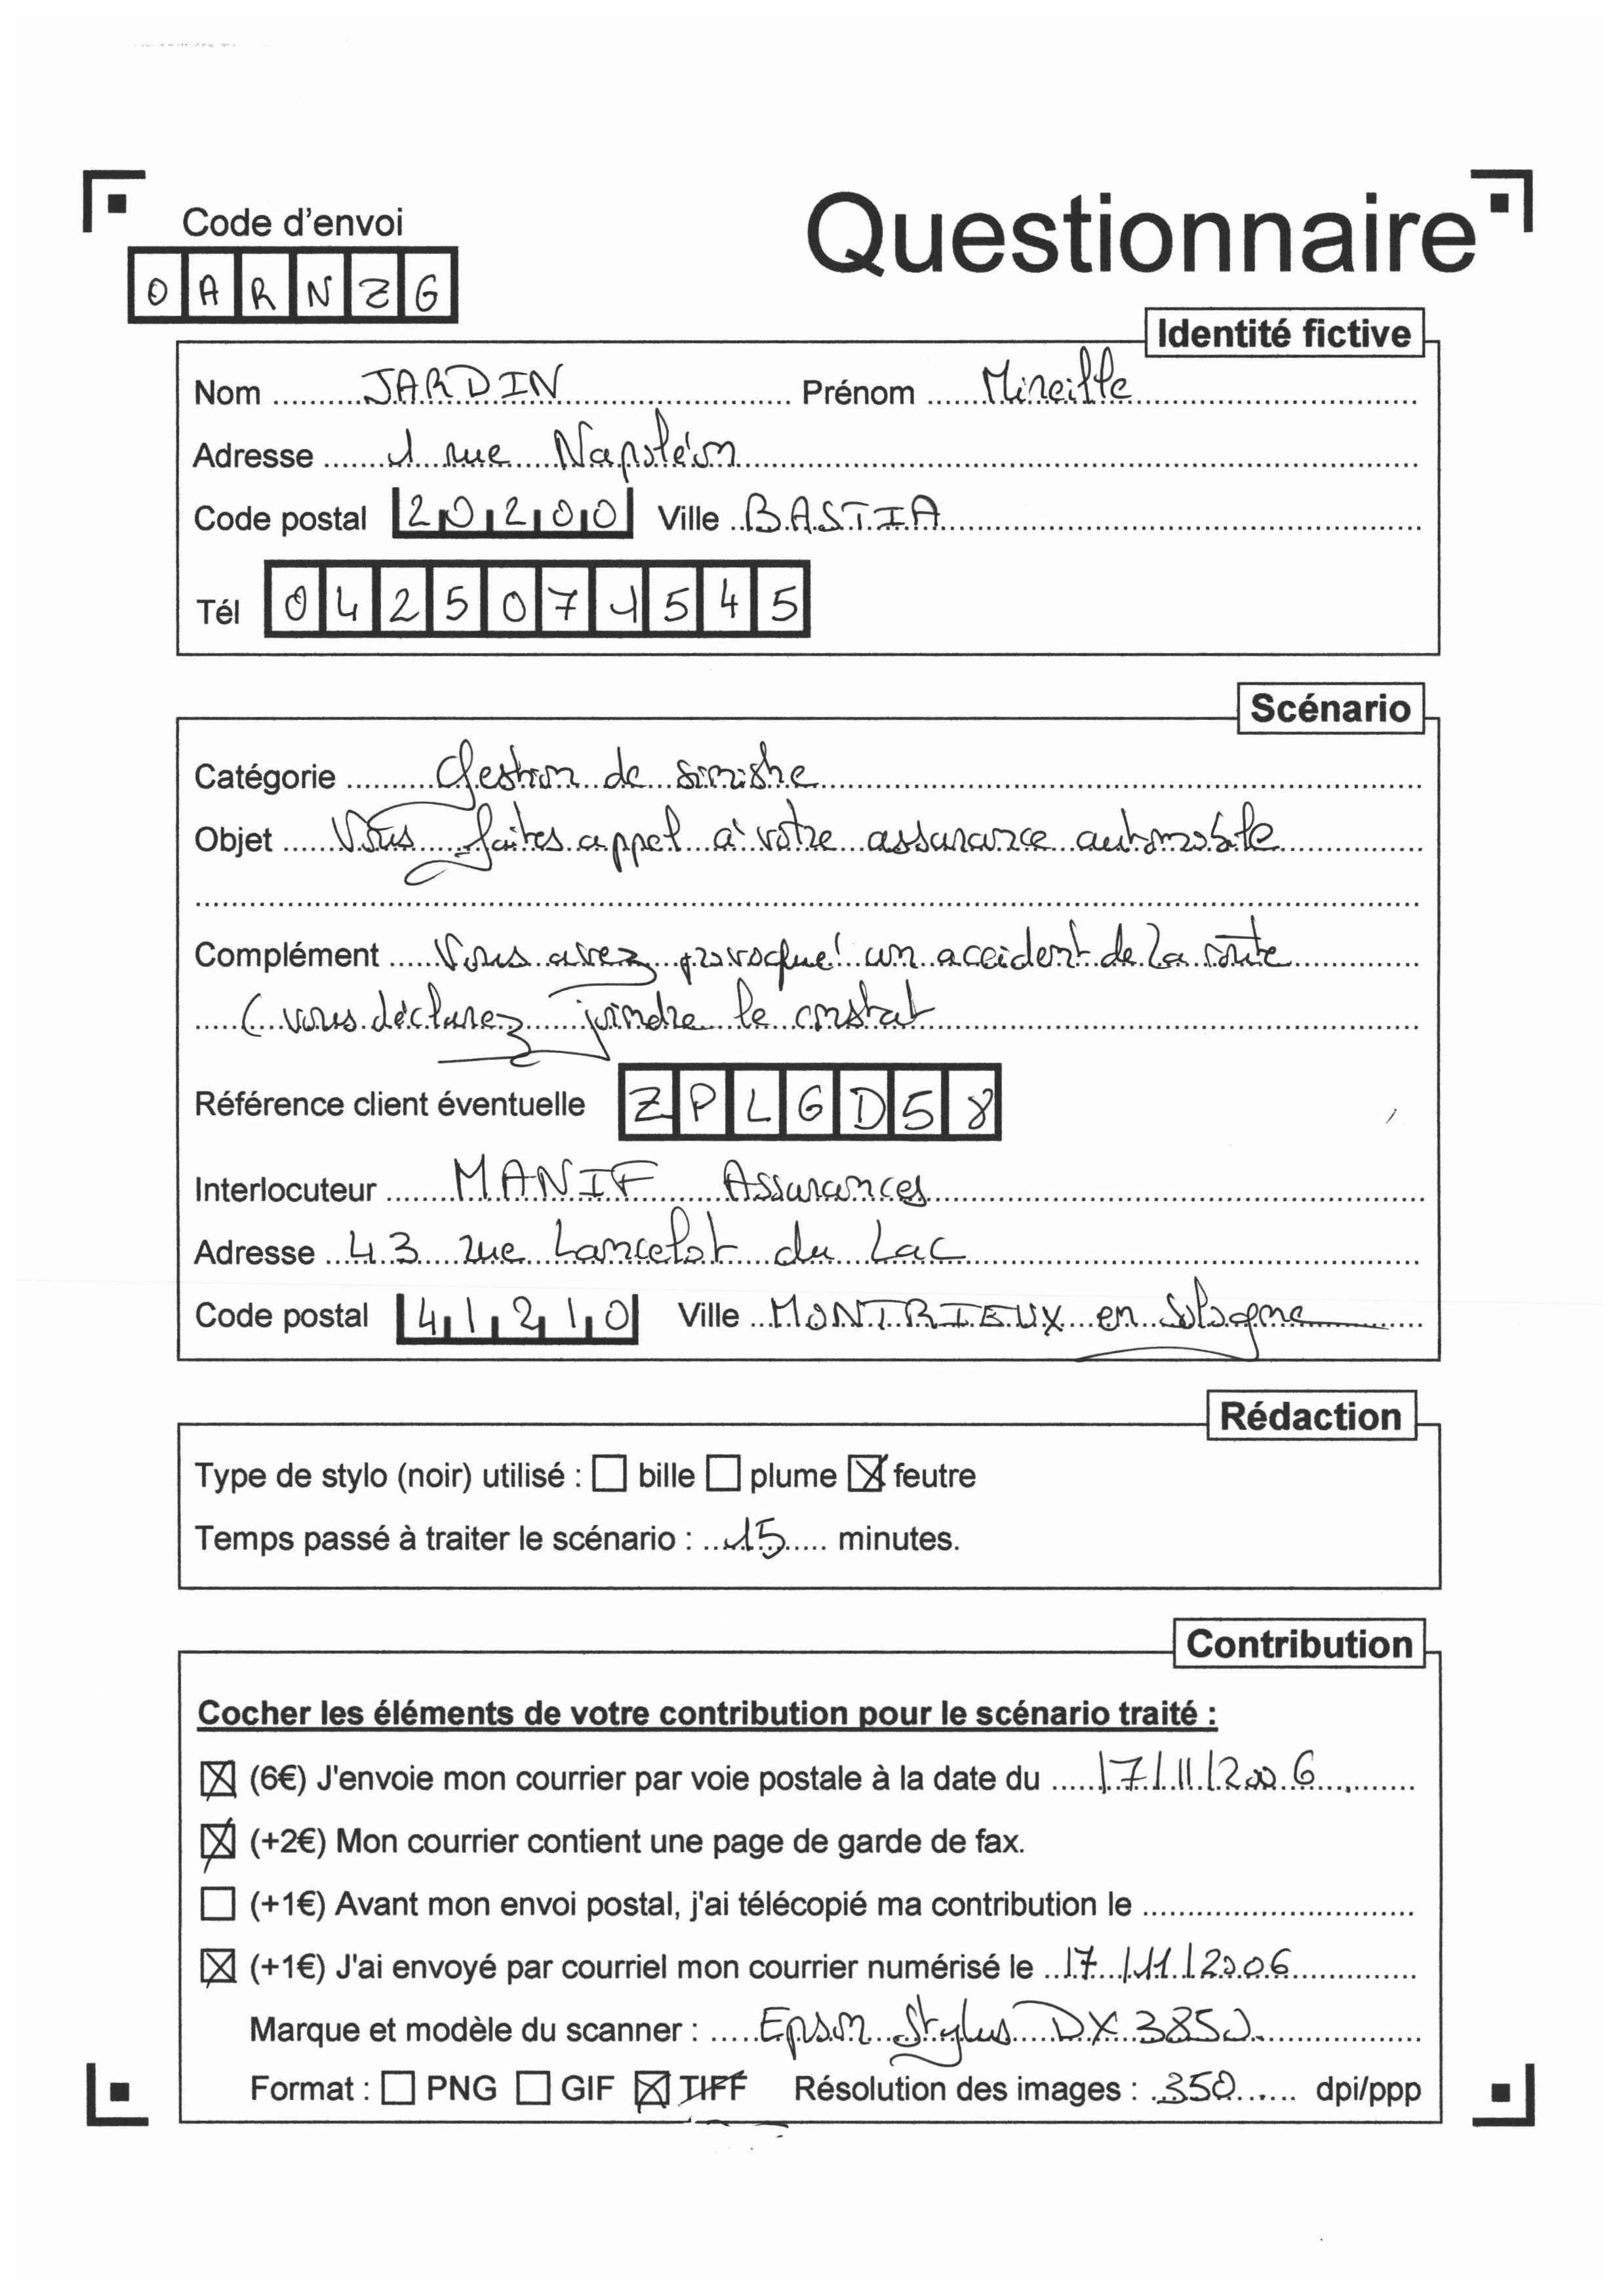 Code d'envoi
Questionnaire
O A R N Z G
Identité fictive
Nom JARDIN Prénom Mireille
Adresse 1 rue Napoléon
Code postal 20200 Ville BASTIA
Tél 0425071545
Scénario
Catégorie Gestion de sinistre
Objet Vous faites appel à votre assurance automobile
Complément Vous avez provoqué un accident de la route
( vous déclarez joindre le constat
Référence client éventuelle Z P L G D 5 8
Interlocuteur MANIF Assurances
Adresse 43 rue Lancelot du Lac
Code postal 41210 Ville MONTRIEUX en Sologne
Rédaction
Type de stylo (noir) utilisé : ☐ bille ☐ plume ☒ feutre
Temps passé à traiter le scénario : 15 minutes.
Contribution
Cocher les éléments de votre contribution pour le scénario traité :
☒ (6€) J'envoie mon courrier par voie postale à la date du 17/11/2006
☒ (+2€) Mon courrier contient une page de garde de fax.
☐ (+1€) Avant mon envoi postal, j'ai télécopié ma contribution le
☒ (+1€) J'ai envoyé par courriel mon courrier numérisé le 17/11/2006
Marque et modèle du scanner : Epson Stylus DX 3850
Format : ☐ PNG ☐ GIF ☒ TIFF Résolution des images : 350 dpi/ppp